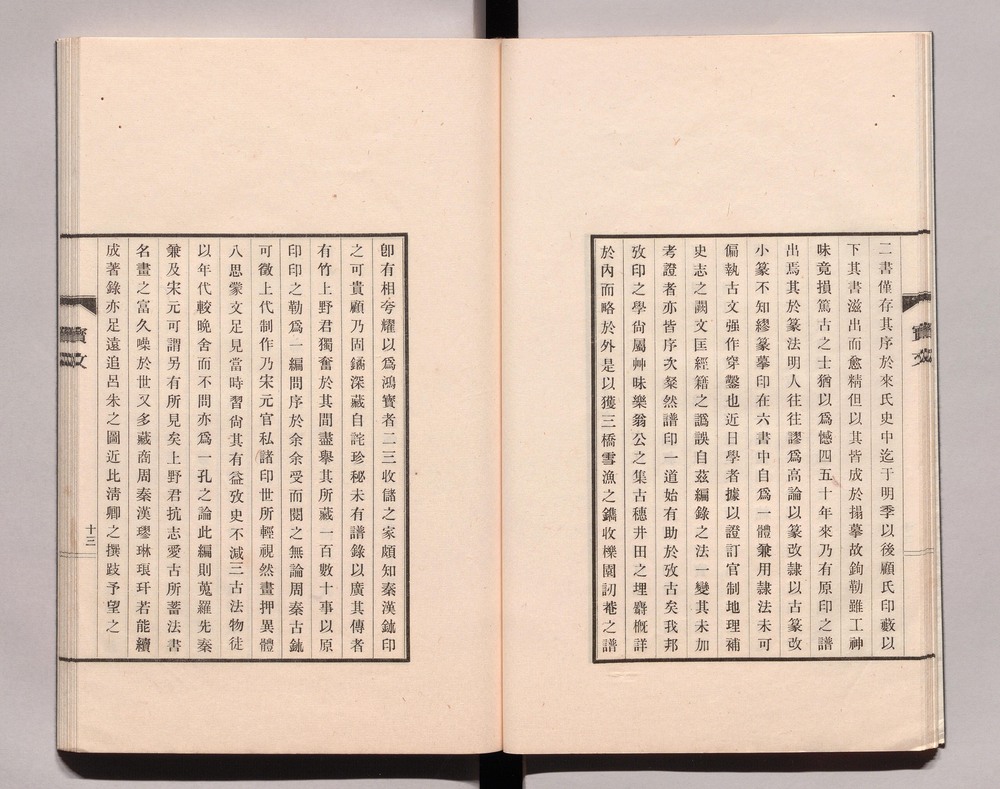 二書僅存其序於來氏史中迄于明季以後顧氏印藪以
下其書滋出而愈精但以其皆成於搨摹故鉤勒雖工神
味竟損篤古之士猶以爲憾四五十年來乃有原印之譜
出焉其於篆法明人往往謬爲高論以篆改隷以古篆改
小篆不知繆篆摹印在六書中自爲一體兼用隷法未可
偏執古文强作穿鑿也近日學者據以證訂官制地理補
史志之闕文匡經籍之譌誤自茲編錄之法一變其未加
考證者亦皆序次粲然譜印一道始有助於攷古矣我邦
攷印之學尙屬艸昧樂翁公之集古穗井田之埋麝概詳
於內而略於外是以獲三橋雪漁之鐫收櫟園訒菴之譜
卽有相夸耀以爲鴻寶者二三收儲之家頗知秦漢鉨印
之可貴顧乃固鐍深藏自詫珍秘未有譜錄以廣其傳者
有竹上野君獨奮於其間盡擧其所藏一百數十事以原
印印之勒爲一編問序於余余受而閱之無論周秦古鉨
可徵上代制作乃宋元官私諸印世所輕視然畫押異體
八思蒙文足見當時習尙其有益攷史不減三古法物徒
以年代較晚舍而不問亦爲一孔之論此編則蒐羅先秦
兼及宋元可謂另有所見矣上野君抗志愛古所蓄法書
名畫之富久噪於世又多藏商周秦漢璆琳琅玕若能續
成著錄亦足遠追呂朱之圖近比淸卿之撰跂予望之
十三